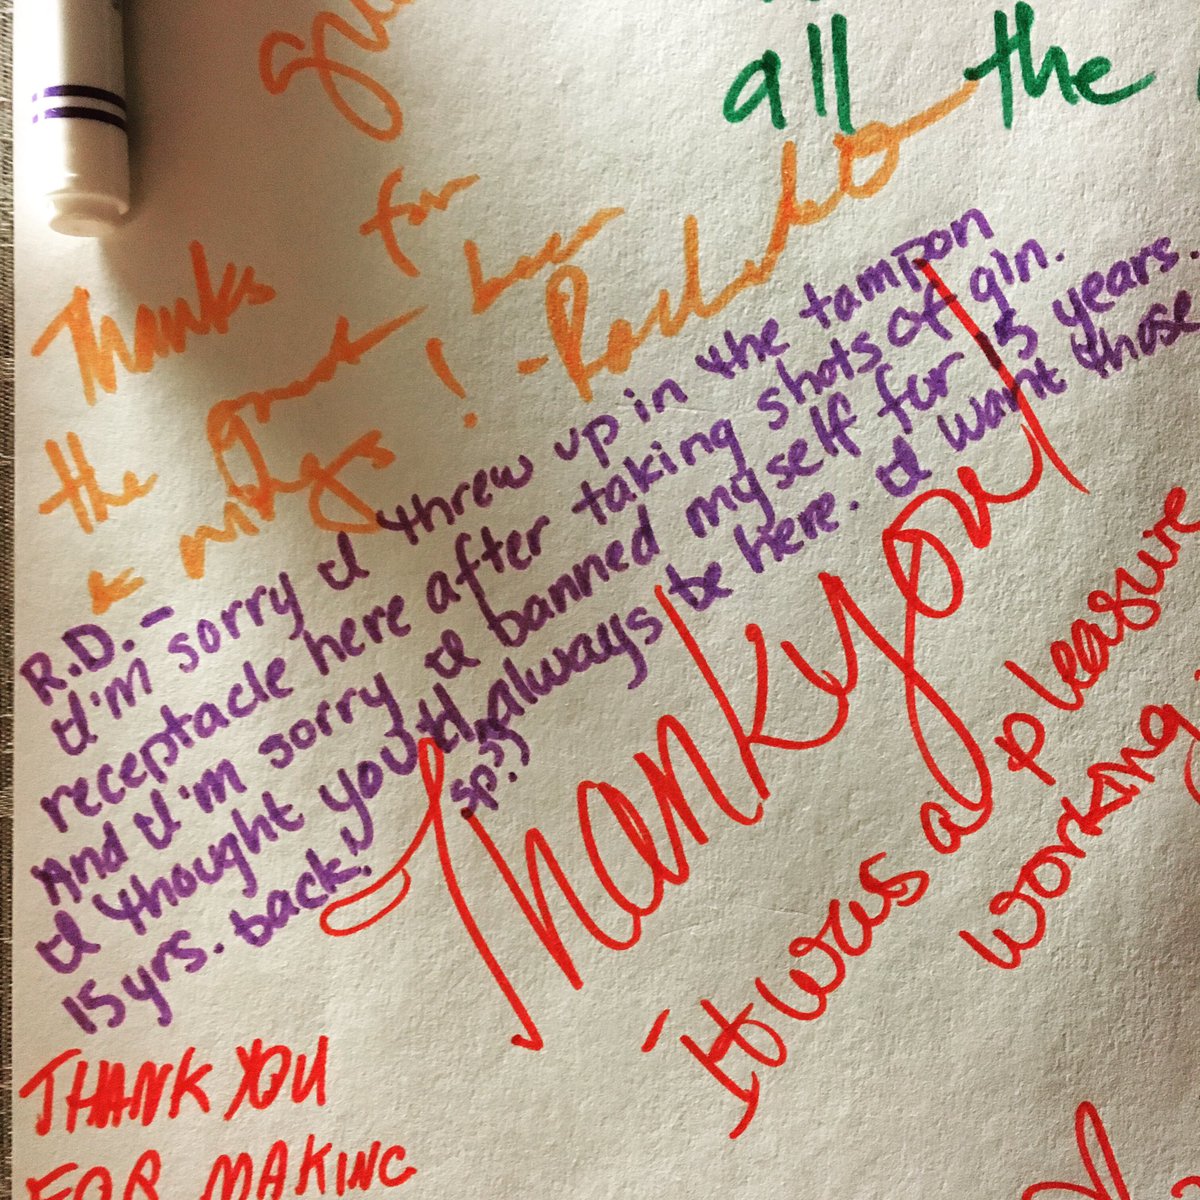 all the
Thanks for
the good beer
& nights!
R.D. -
I'm sorry I threw up in the tampon
receptacle here after taking shots of gin.
And I'm sorry I banned myself for 15 years.
I thought you'd always be here. I want those
15 yrs. back! sp.??
Thank you!
- It was a pleasure
working
THANK YOU
FOR MAKING